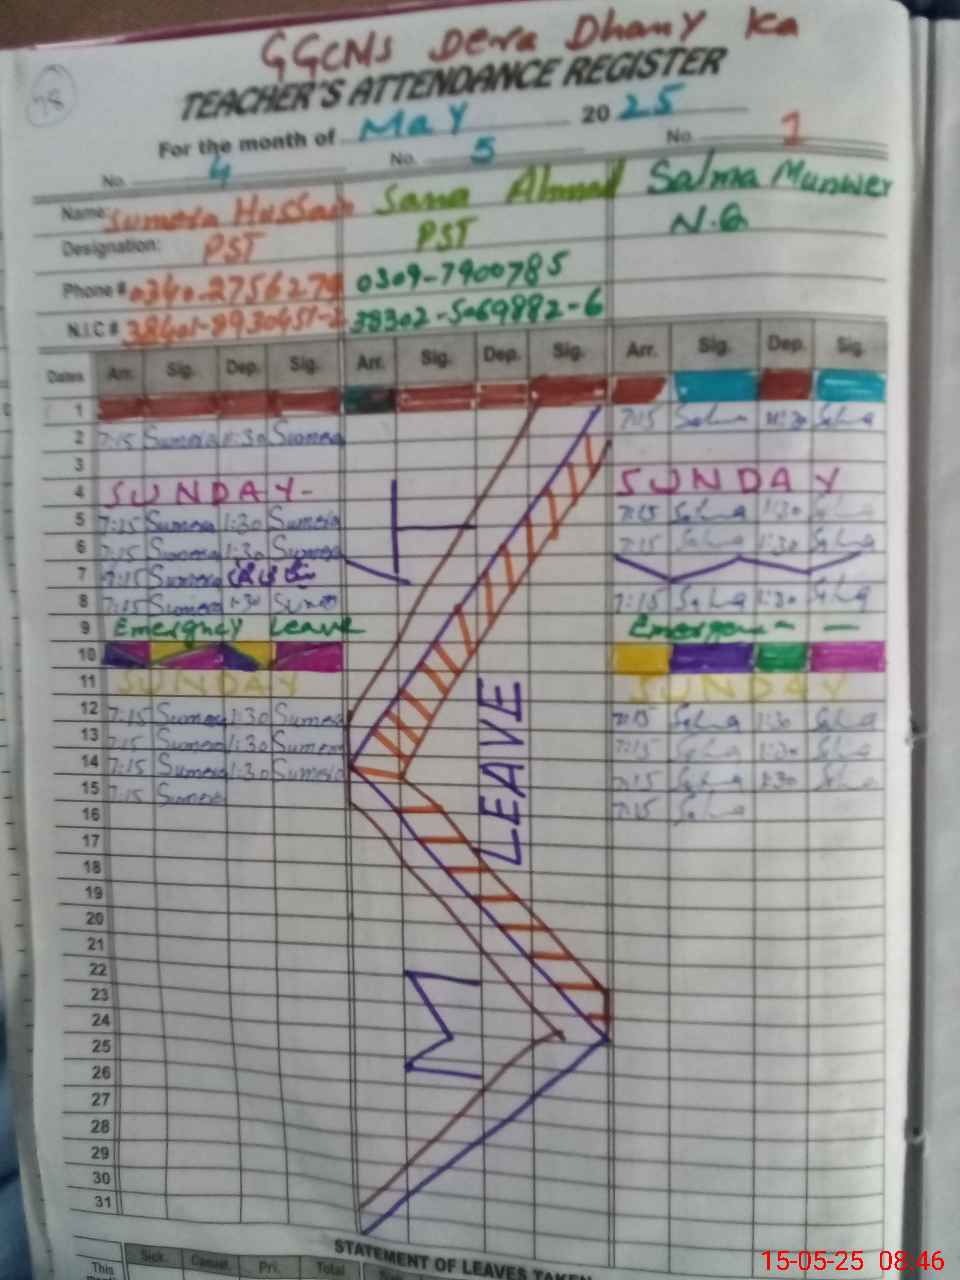 GGCNS Dera Dhany Ka
78
TEACHER'S ATTENDANCE REGISTER
For the month of May 2025
No. 4 No. 5 No. 1
Name: Sumera Hussain Sana Ahmad Salma Munwer
Designation: PST PST N.Q
Phone # 0340-2756279 0309-7900785
N.I.C # 38302-5069882-6
Dates Arr. Sig. Dep. Sig. Arr. Sig. Dep. Sig. Arr. Sig. Dep. Sig.
1
2 7:15 Sumera 1:30 Sumera 7:15 Salma 11:30 Salma
3
4 SUNDAY- SUNDAY
5 7:15 Sumera 1:30 Sumera 7:15 Salma 1:30 Salma
6 7:15 Sumera 1:30 Sumera 7:15 Salma 1:30 Salma
7 7:15 Sumera
8 7:15 Sumera 1:30 Sumera 7:15 Salma 1:30 Salma
9 Emergncy Leave
10
11 SUNDAY SUNDAY
12 7:15 Sumera 1:30 Sumera 7:15 Salma 1:30 Salma
13 7:15 Sumera 1:30 Sumera 7:15 Salma 1:30 Salma
14 7:15 Sumera 1:30 Sumera 7:15 Salma 1:30 Salma
15 7:15 Sumera 7:15 Salma
16
17
18
19
20
21
22
23
24
25
26
27
28
29
30
31
LEAVE
STATEMENT OF LEAVES TAKEN
This Sick Casual Pri. Total
15-05-25 08:46